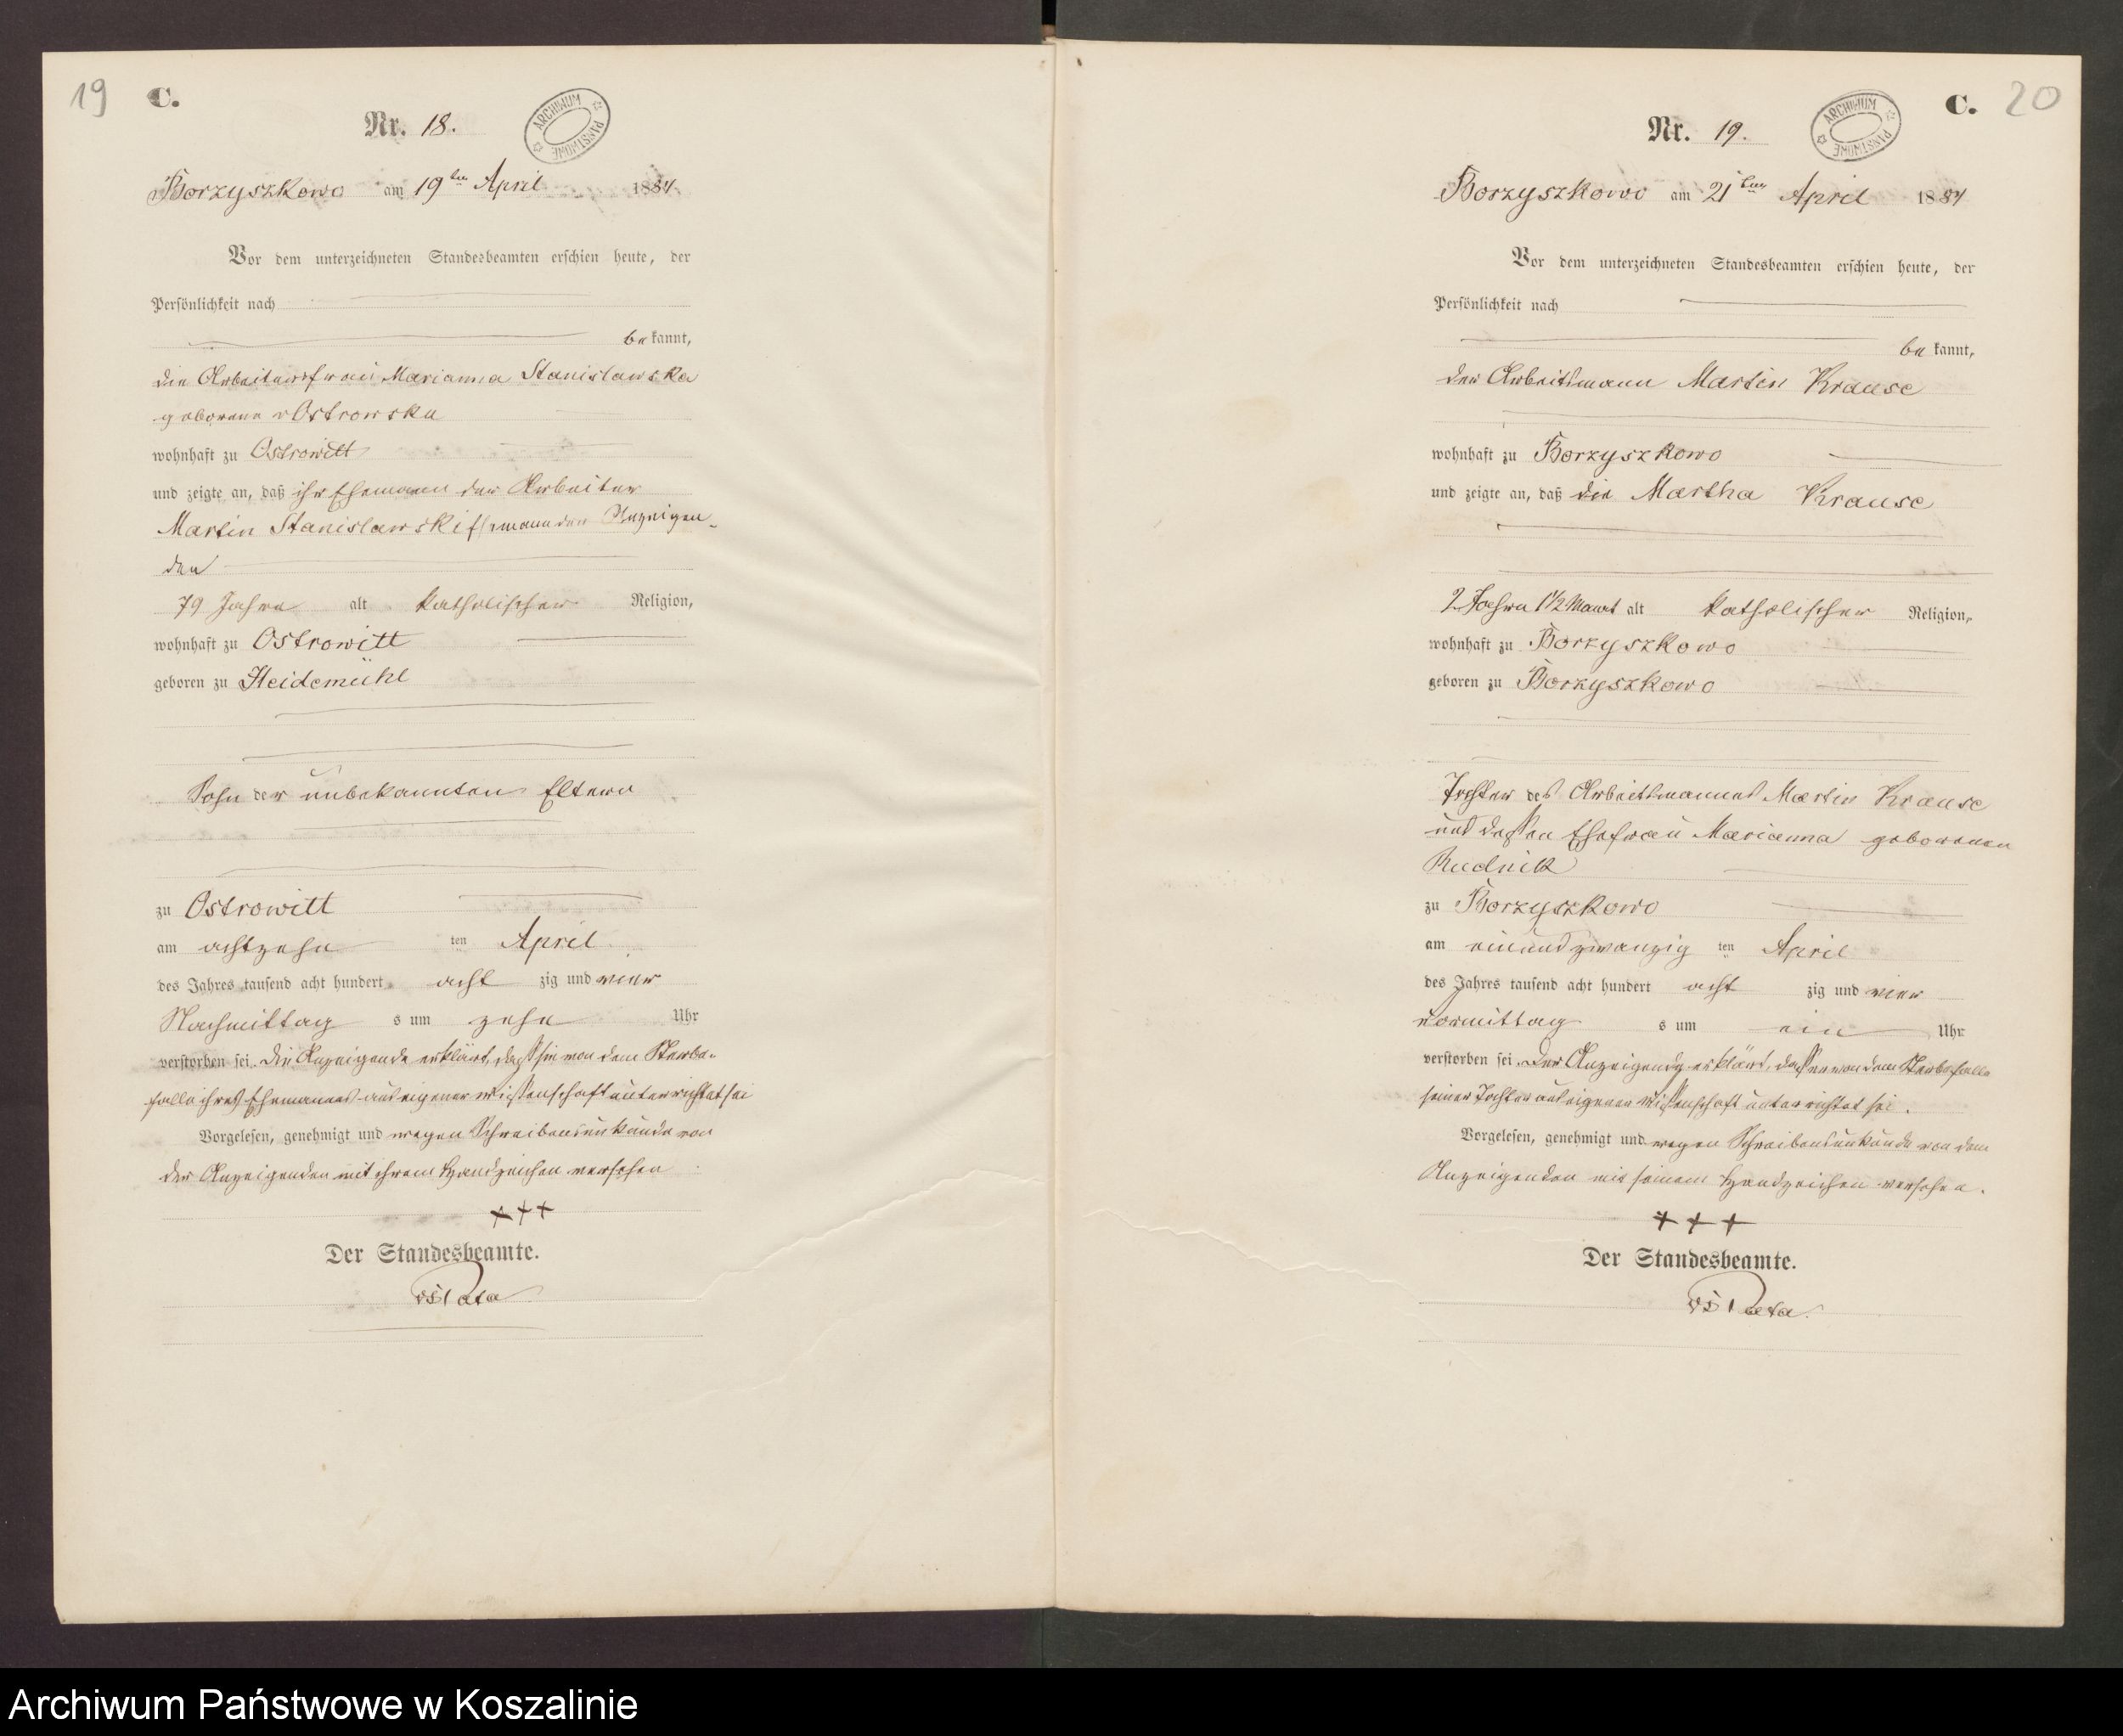 19
C.
Nr. 18.
ARCHIWUM PAŃSTWOWE
Borzyszkowo am 19ten April 1884
Vor dem unterzeichneten Standesbeamten erschien heute, der
Persönlichkeit nach
bekannt,
die Arbeiterfrau Marianna Stanislawska
geborene Ostrowska
wohnhaft zu Ostrowitt
und zeigte an, daß ihr Ehemann der Arbeiter
Martin Stanislawski Ehemann der Anzeigen-
den
79 Jahre alt katholischer Religion,
wohnhaft zu Ostrowitt
geboren zu Heidemühl
Sohn der unbekannten Eltern
zu Ostrowitt
am achtzehn ten April
des Jahres tausend acht hundert acht zig und vier
Nachmittag s um zehn Uhr
verstorben sei. Die Anzeigende erklärt, daß sie von dem Sterbe-
falle ihres Ehemannes aus eigener Wissenschaft unterrichtet sei
Vorgelesen, genehmigt und wegen Schreibensunkunde von
der Anzeigenden mit ihrem Handzeichen versehen
+++
Der Standesbeamte.
C. 20
Nr. 19.
ARCHIWUM PAŃSTWOWE
Borzyszkowo am 21ten April 1884
Vor dem unterzeichneten Standesbeamten erschien heute, der
Persönlichkeit nach
bekannt,
der Arbeitsmann Martin Krause
wohnhaft zu Borzyszkowo
und zeigte an, daß die Martha Krause
2 Jahre 1½ Monat alt katholischer Religion,
wohnhaft zu Borzyszkowo
geboren zu Borzyszkowo
Tochter des Arbeitsmannes Martin Krause
und dessen Ehefrau Marianna geborenen
Rudnik
zu Borzyszkowo
am einundzwanzig ten April
des Jahres tausend acht hundert acht zig und vier
vormittag s um ein Uhr
verstorben sei. Der Anzeigende erklärt, daß er von dem Sterbefalle
seiner Tochter aus eigener Wissenschaft unterrichtet sei.
Vorgelesen, genehmigt und wegen Schreibensunkunde von dem
Anzeigenden mit seinem Handzeichen versehen.
+++
Der Standesbeamte.
Archiwum Państwowe w Koszalinie